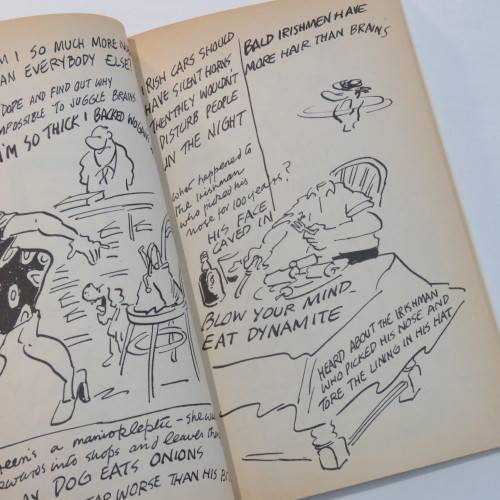 I SO MUCH MORE
THAN EVERYBODY ELSE?
DOPE AND FIND OUT WHY
IMPOSSIBLE TO JUGGLE BRAINS
I'M SO THICK I BACKED
a maniokleptic - she
into shops and leaves
DOG EATS ONIONS
WORSE THAN HIS
IRISH CARS SHOULD
HAVE SILENT HORNS
THEN THEY WOULDN'T
DISTURB PEOPLE
IN THE NIGHT
BALD IRISHMEN HAVE
MORE HAIR THAN BRAINS
What happened to
the Irishman
who picked his
nose for 100 years?
HIS FACE
CAVED IN
BLOW YOUR MIND
EAT DYNAMITE
HEARD ABOUT THE IRISHMAN
WHO PICKED HIS NOSE AND
TORE THE LINING IN HIS HAT